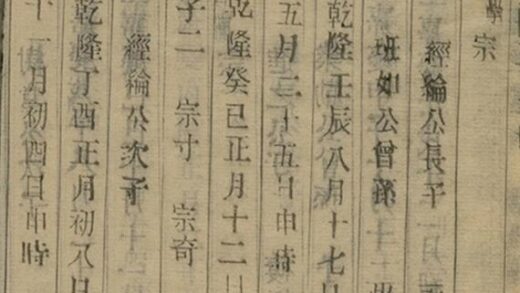 宗
經綸公長子
班如公曾孫
乾隆壬辰八月十七
五月二十五日申時
乾隆癸巳正月十二日
子二 宗寸 宗奇
經綸公次子
乾隆丁酉正月初八日
十一月初四日申時